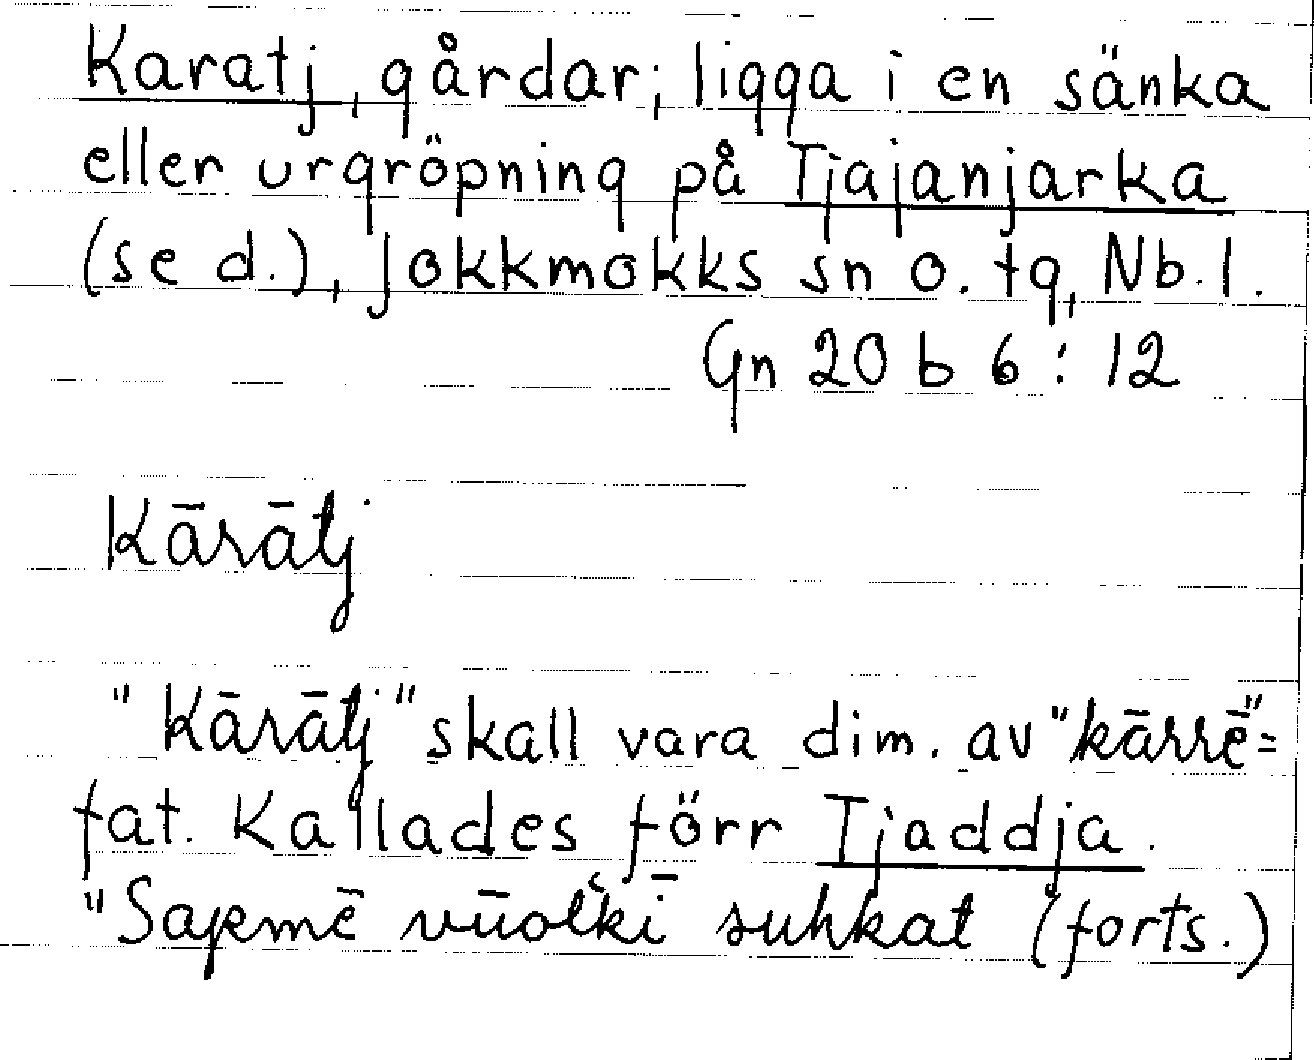 Karatj, gårdar; ligga i en sänka
eller urgröpning på Tjajanjarka
(se d.), Jokkmokks sn o. tg, Nb. l.
Gn 20 b 6 : 12
Kārātj
"Kārātj" skall vara dim. av "kārrē" =
fat. Kallades förr Tjaddja.
"Sapmē vūolʻkī suhkat (forts.)